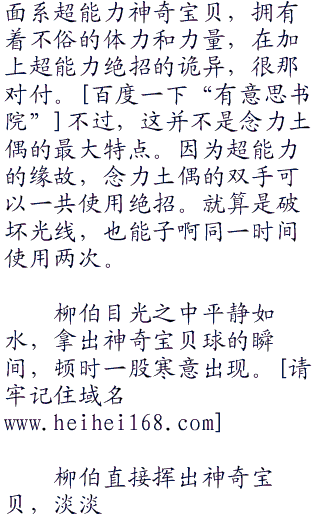 面系超能力神奇宝贝，拥有
着不俗的体力和力量，在加
上超能力绝招的诡异，很那
对付。[百度一下“有意思书
院”]不过，这并不是念力土
偶的最大特点。因为超能力
的缘故，念力土偶的双手可
以一共使用绝招。就算是破
坏光线，也能子啊同一时间
使用两次。
柳伯目光之中平静如
水，拿出神奇宝贝球的瞬
间，顿时一股寒意出现。[请
牢记住域名
www.heihei168.com]
柳伯直接挥出神奇宝
贝，淡淡